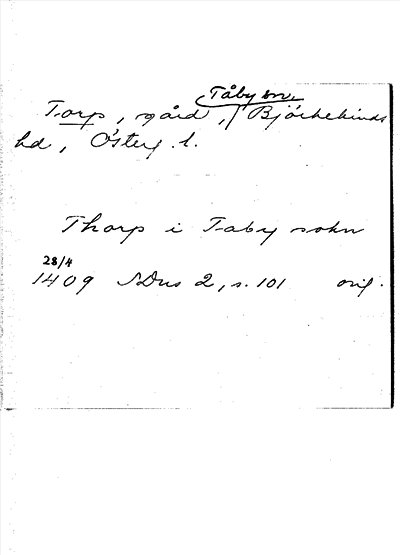 Tåby sn.
Torp, gård, Björkekinds
hd, Österg. l.
Thorp i Taby sokn
28/4
1409 SDns 2, s. 101 orig.